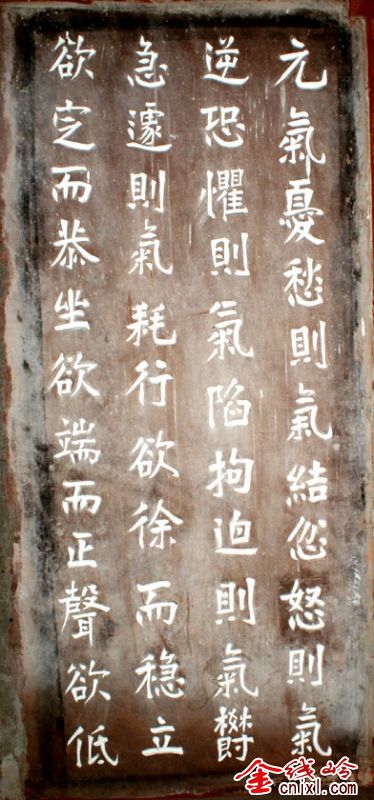 元氣憂愁則氣結忿怒則氣
逆恐懼則氣陷拘迫則氣欝
急遽則氣耗行欲徐而稳立
欲定而恭坐欲端而正聲欲低
金线岭
cnlxl.com